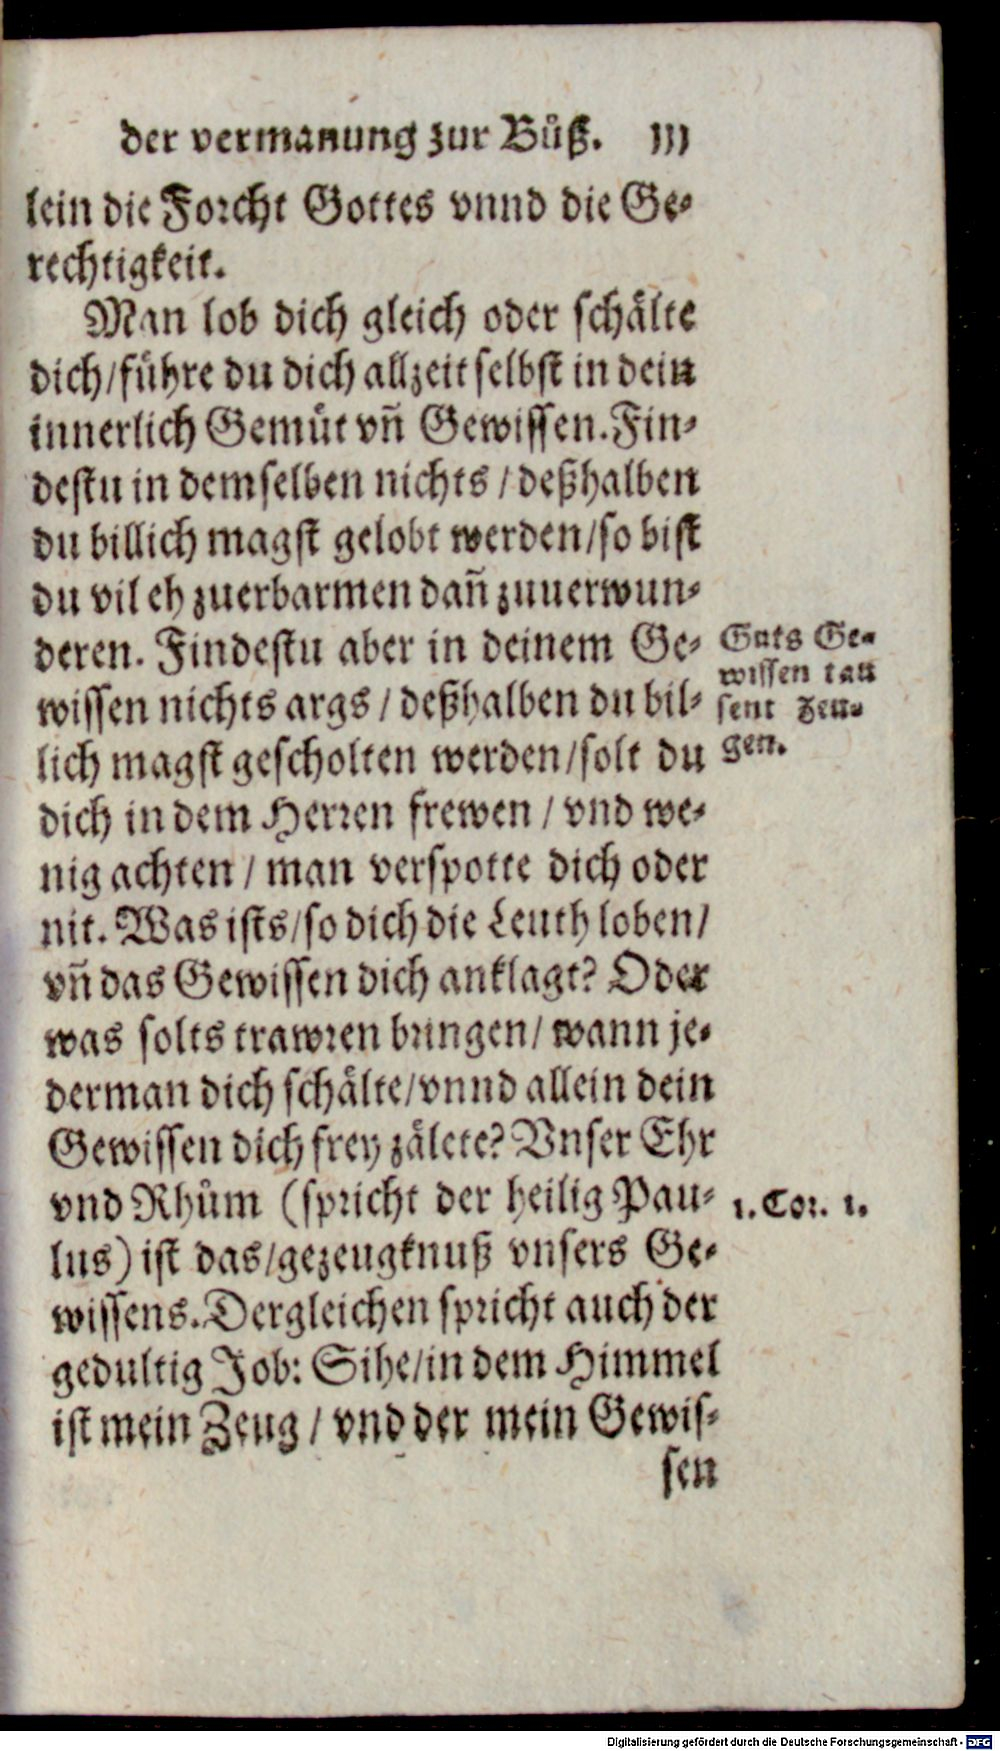 der vermanung zur Buͦß. 111
lein die Forcht Gottes vnnd die Ge-
rechtigkeit.
Man lob dich gleich oder schälte
dich/führe du dich allzeit selbst in dein
innerlich Gemuͤt vñ Gewissen. Fin-
destu in demselben nichts / deßhalben
du billich magst gelobt werden/so bist
du vil eh zuerbarmen dañ zuuerwun-
deren. Findestu aber in deinem Ge-
wissen nichts args / deßhalben du bil-
lich magst gescholten werden/solt du
dich in dem Herren frewen / vnd we-
nig achten / man verspotte dich oder
nit. Was ists/so dich die Leuth loben/
vñ das Gewissen dich anklagt? Oder
was solts trawren bringen/ wann je-
derman dich schälte/vnnd allein dein
Gewissen dich frey zälete? Vnser Ehr
vnd Rhuͦm (spricht der heilig Pau-
lus) ist das/gezeugknuß vnsers Ge-
wissens. Dergleichen spricht auch der
gedultig Job: Sihe/in dem Himmel
ist mein Zeug / vnd der mein Gewis-
sen
Guts Ge-
wissen tau
sent Zeu-
gen.
1. Cor. 1.
Digitalisierung gefördert durch die Deutsche Forschungsgemeinschaft - DFG